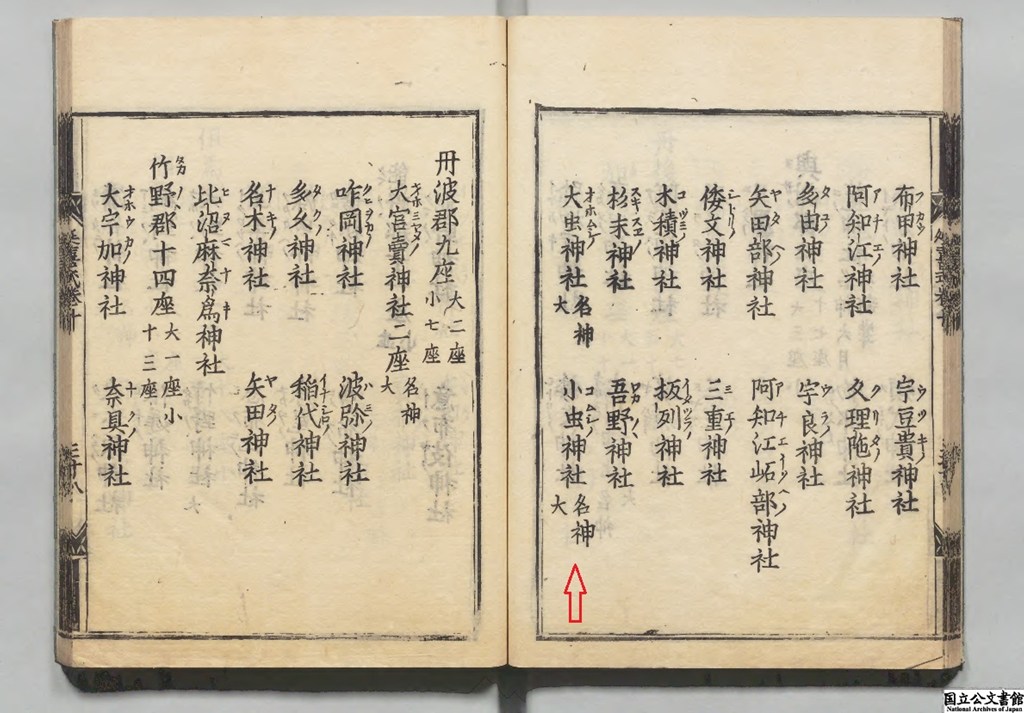 布甲神社 宇豆貴神社
阿知江神社 久理陁神社
多由神社 宇良神社
矢田部神社 阿知江峠部神社
倭文神社 三重神社
木積神社 板列神社
杉末神社 吾野神社
大虫神社 名神大 小虫神社 名神大
丹波郡九座 大二座 小七座
大宮賣神社二座 名神大
咋岡神社 波弥神社
多久神社 稲代神社
名木神社 矢田神社
比沼麻奈爲神社
竹野郡十四座 大一座小十三座
大宇加神社 奈具神社
国立公文書館
National Archives of Japan